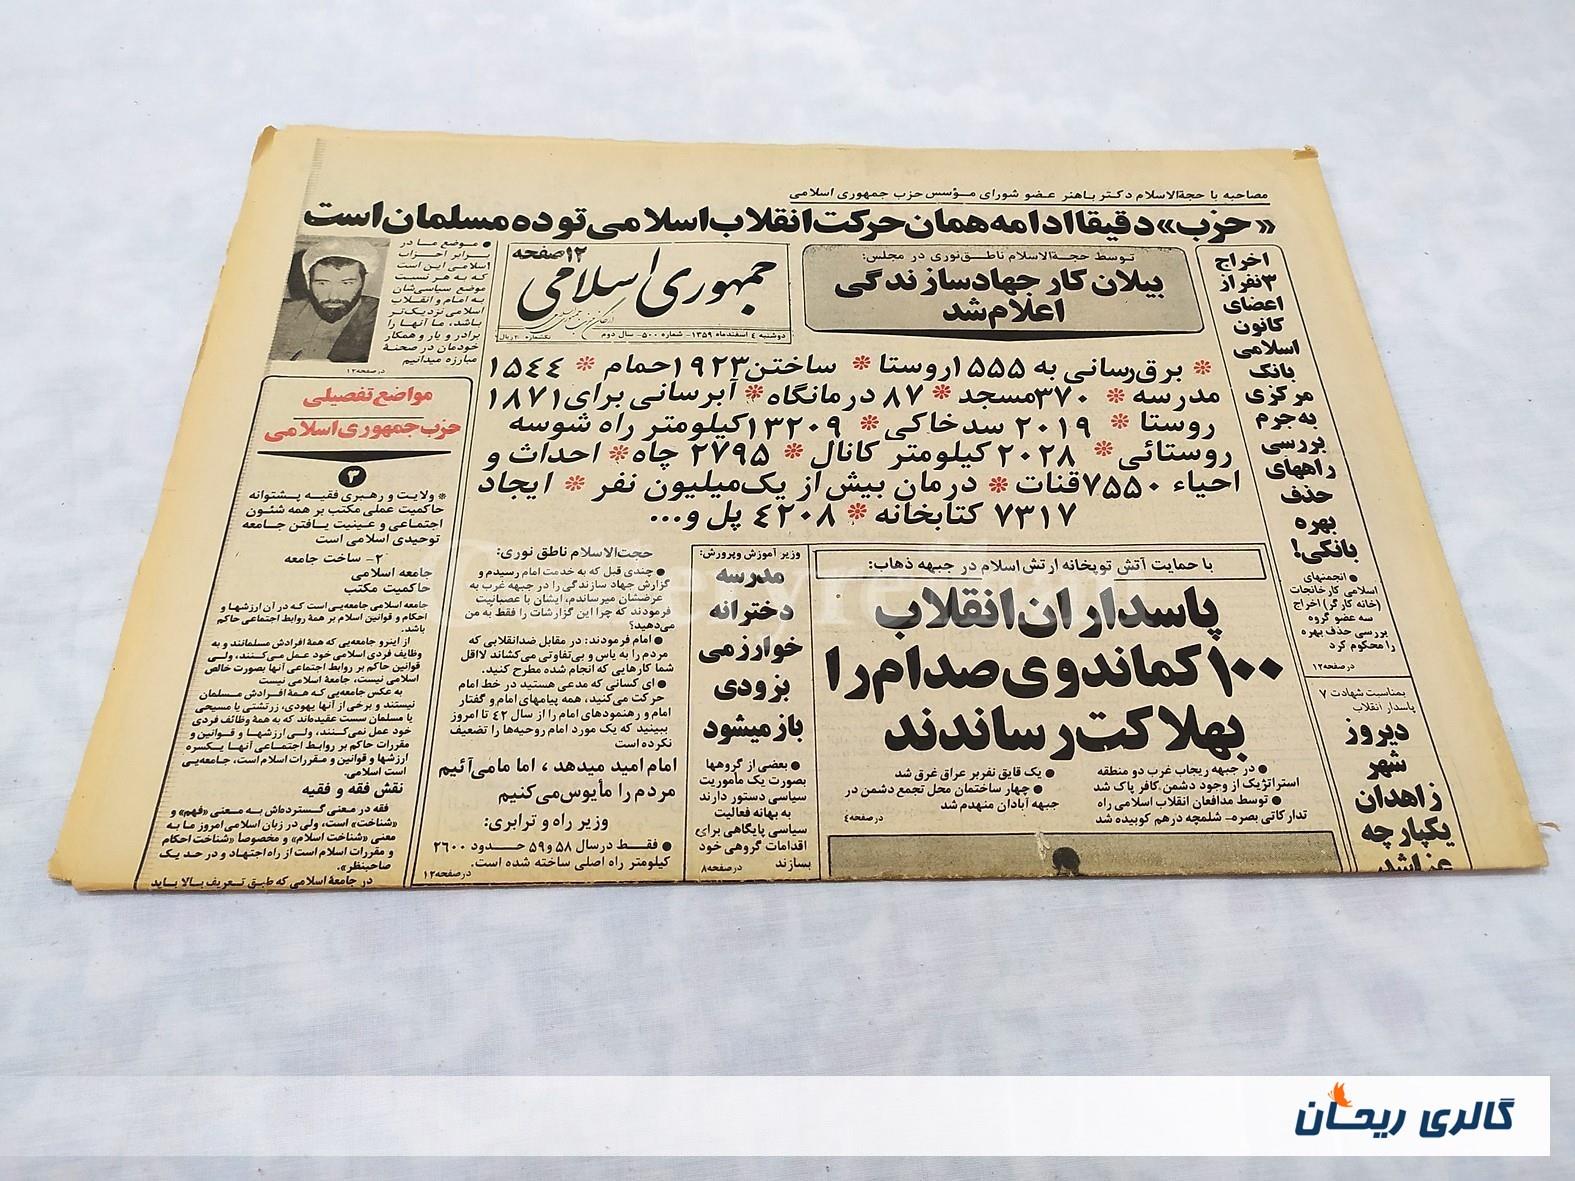 مصاحبه با حجةالاسلام دکتر باهنر عضو شورای مؤسس حزب جمهوری اسلامی
«حزب» دقیقا ادامه همان حرکت انقلاب اسلامی توده مسلمان است
اخراج
۳ نفر از
اعضای
کانون
اسلامی
بانک
مرکزی
به جرم
بررسی
راههای
حذف
بهره
بانکی!
● انجمنهای
اسلامی کارخانجات
(خانه کارگر) اخراج
سه عضو گروه
بررسی حذف بهره
را محکوم کرد
در صفحه ۱۲
بمناسبت شهادت ۷
پاسدار انقلاب
دیروز
شهر
زاهدان
یکپارچه
عزا شد
توسط حجةالاسلام ناطق نوری در مجلس:
بیلان کار جهاد سازندگی
اعلام شد
۱۲ صفحه
جمهوری اسلامی
ارگان حزب جمهوری اسلامی
دوشنبه ٤ اسفندماه ۱۳۵۹ - شماره ۵۰۰ - سال دوم
تکشماره ۲۰ ریال
● موضع ما در
برابر احزاب
اسلامی این است
که به هر نسبت
موضع سیاسی‌شان
به امام و انقلاب
اسلامی نزدیک‌تر
باشد، ما آنها را
برادر و یار و همکار
خودمان در صحنهٔ
مبارزه میدانیم
در صفحه ۱۲
* برق‌رسانی به ۱۵۵۵ روستا * ساختن ۱۹۲۳ حمام * ۱۵٤٤
مدرسه * ۳۷۰ مسجد * ۸۷ درمانگاه * آبرسانی برای ۱۸۷۱
روستا * ۲۰۱۹ سد خاکی * ۱۳۲۰۹ کیلومتر راه شوسه
روستائی * ۲۰۲۸ کیلومتر کانال * ۲۷۹۵ چاه * احداث و
احیاء ۷۵۵۰ قنات * درمان بیش از یک میلیون نفر * ایجاد
۷۳۱۷ کتابخانه * ٤۲۰۸ پل و...
با حمایت آتش توپخانه ارتش اسلام در جبهه ذهاب:
پاسداران انقلاب
۱۰۰ کماندوی صدام را
بهلاکت رساندند
● در جبهه ریجاب غرب دو منطقه
استراتژیک از وجود دشمن کافر پاک شد
● توسط مدافعان انقلاب اسلامی راه
تدارکاتی بصره- شلمچه درهم کوبیده شد
● یک قایق نفربر عراق غرق شد
● چهار ساختمان محل تجمع دشمن در
جبهه آبادان منهدم شد
در صفحه ٤
وزیر آموزش و پرورش:
مدرسه
دخترانه
خوارزمی
بزودی
باز میشود
● بعضی از گروهها
بصورت یک مأموریت
سیاسی دستور دارند
به بهانه فعالیت
سیاسی پایگاهی برای
اقدامات گروهی خود
بسازند
در صفحه ۸
حجت‌الاسلام ناطق نوری:
● چندی قبل که به خدمت امام رسیدم و
گزارش جهاد سازندگی را در جبهه غرب به
عرضشان میرساندم، ایشان با عصبانیت
فرمودند که چرا این گزارشات را فقط به من
می‌دهید؟
● امام فرمودند: در مقابل ضدانقلابی که
مردم را به یاس و بی‌تفاوتی می‌کشاند لااقل
شما کارهایی که انجام شده مطرح کنید.
● ای کسانی که مدعی هستید در خط امام
حرکت می‌کنید، همه پیامهای امام و گفتار
امام و رهنمودهای امام را از سال ٤۲ تا امروز
ببینید که یک مورد امام روحیه‌ها را تضعیف
نکرده است
امام امید میدهد، اما ما می‌آئیم
مردم را مأیوس می‌کنیم
وزیر راه و ترابری:
● فقط در سال ۵۸ و ۵۹ حدود ۲۶۰۰
کیلومتر راه اصلی ساخته شده است.
در صفحه ۱۲
مواضع تفصیلی
حزب جمهوری اسلامی
۳
* ولایت و رهبری فقیه پشتوانه
حاکمیت عملی مکتب بر همه شئون
اجتماعی و عینیت یافتن جامعه
توحیدی اسلامی است
۲- ساخت جامعه
جامعه اسلامی
حاکمیت مکتب
جامعه اسلامی جامعه‌یی است که در آن ارزشها و
احکام و قوانین اسلام بر همهٔ روابط اجتماعی حاکم
باشد.
از اینرو جامعه‌یی که همهٔ افرادش مسلمانند و به
وظایف فردی اسلامی خود عمل می‌کنند، ولی
قوانین حاکم بر روابط اجتماعی آنها بصورت خالص
اسلامی نیست، جامعهٔ اسلامی نیست
به عکس جامعه‌یی که همهٔ افرادش مسلمان
نیستند و برخی از آنها یهودی، زرتشتی یا مسیحی
یا مسلمان سست عقیده‌اند که به همهٔ وظائف فردی
خود عمل نمی‌کنند، ولی ارزشها و قوانین و
مقررات حاکم بر روابط اجتماعی آنها یکسره
ارزشها و قوانین و مقررات اسلام است، جامعه‌یی
است اسلامی.
نقش فقه و فقیه
فقه در معنی گسترده‌اش به معنی «فهم» و
«شناخت» است، ولی در زبان اسلامی امروز ما به
معنی «شناخت اسلام» و مخصوصا «شناخت احکام
و مقررات اسلام است از راه اجتهاد و در حد یک
صاحبنظر».
در جامعهٔ اسلامی که طبق تعریف بالا باید
گالری ریحان